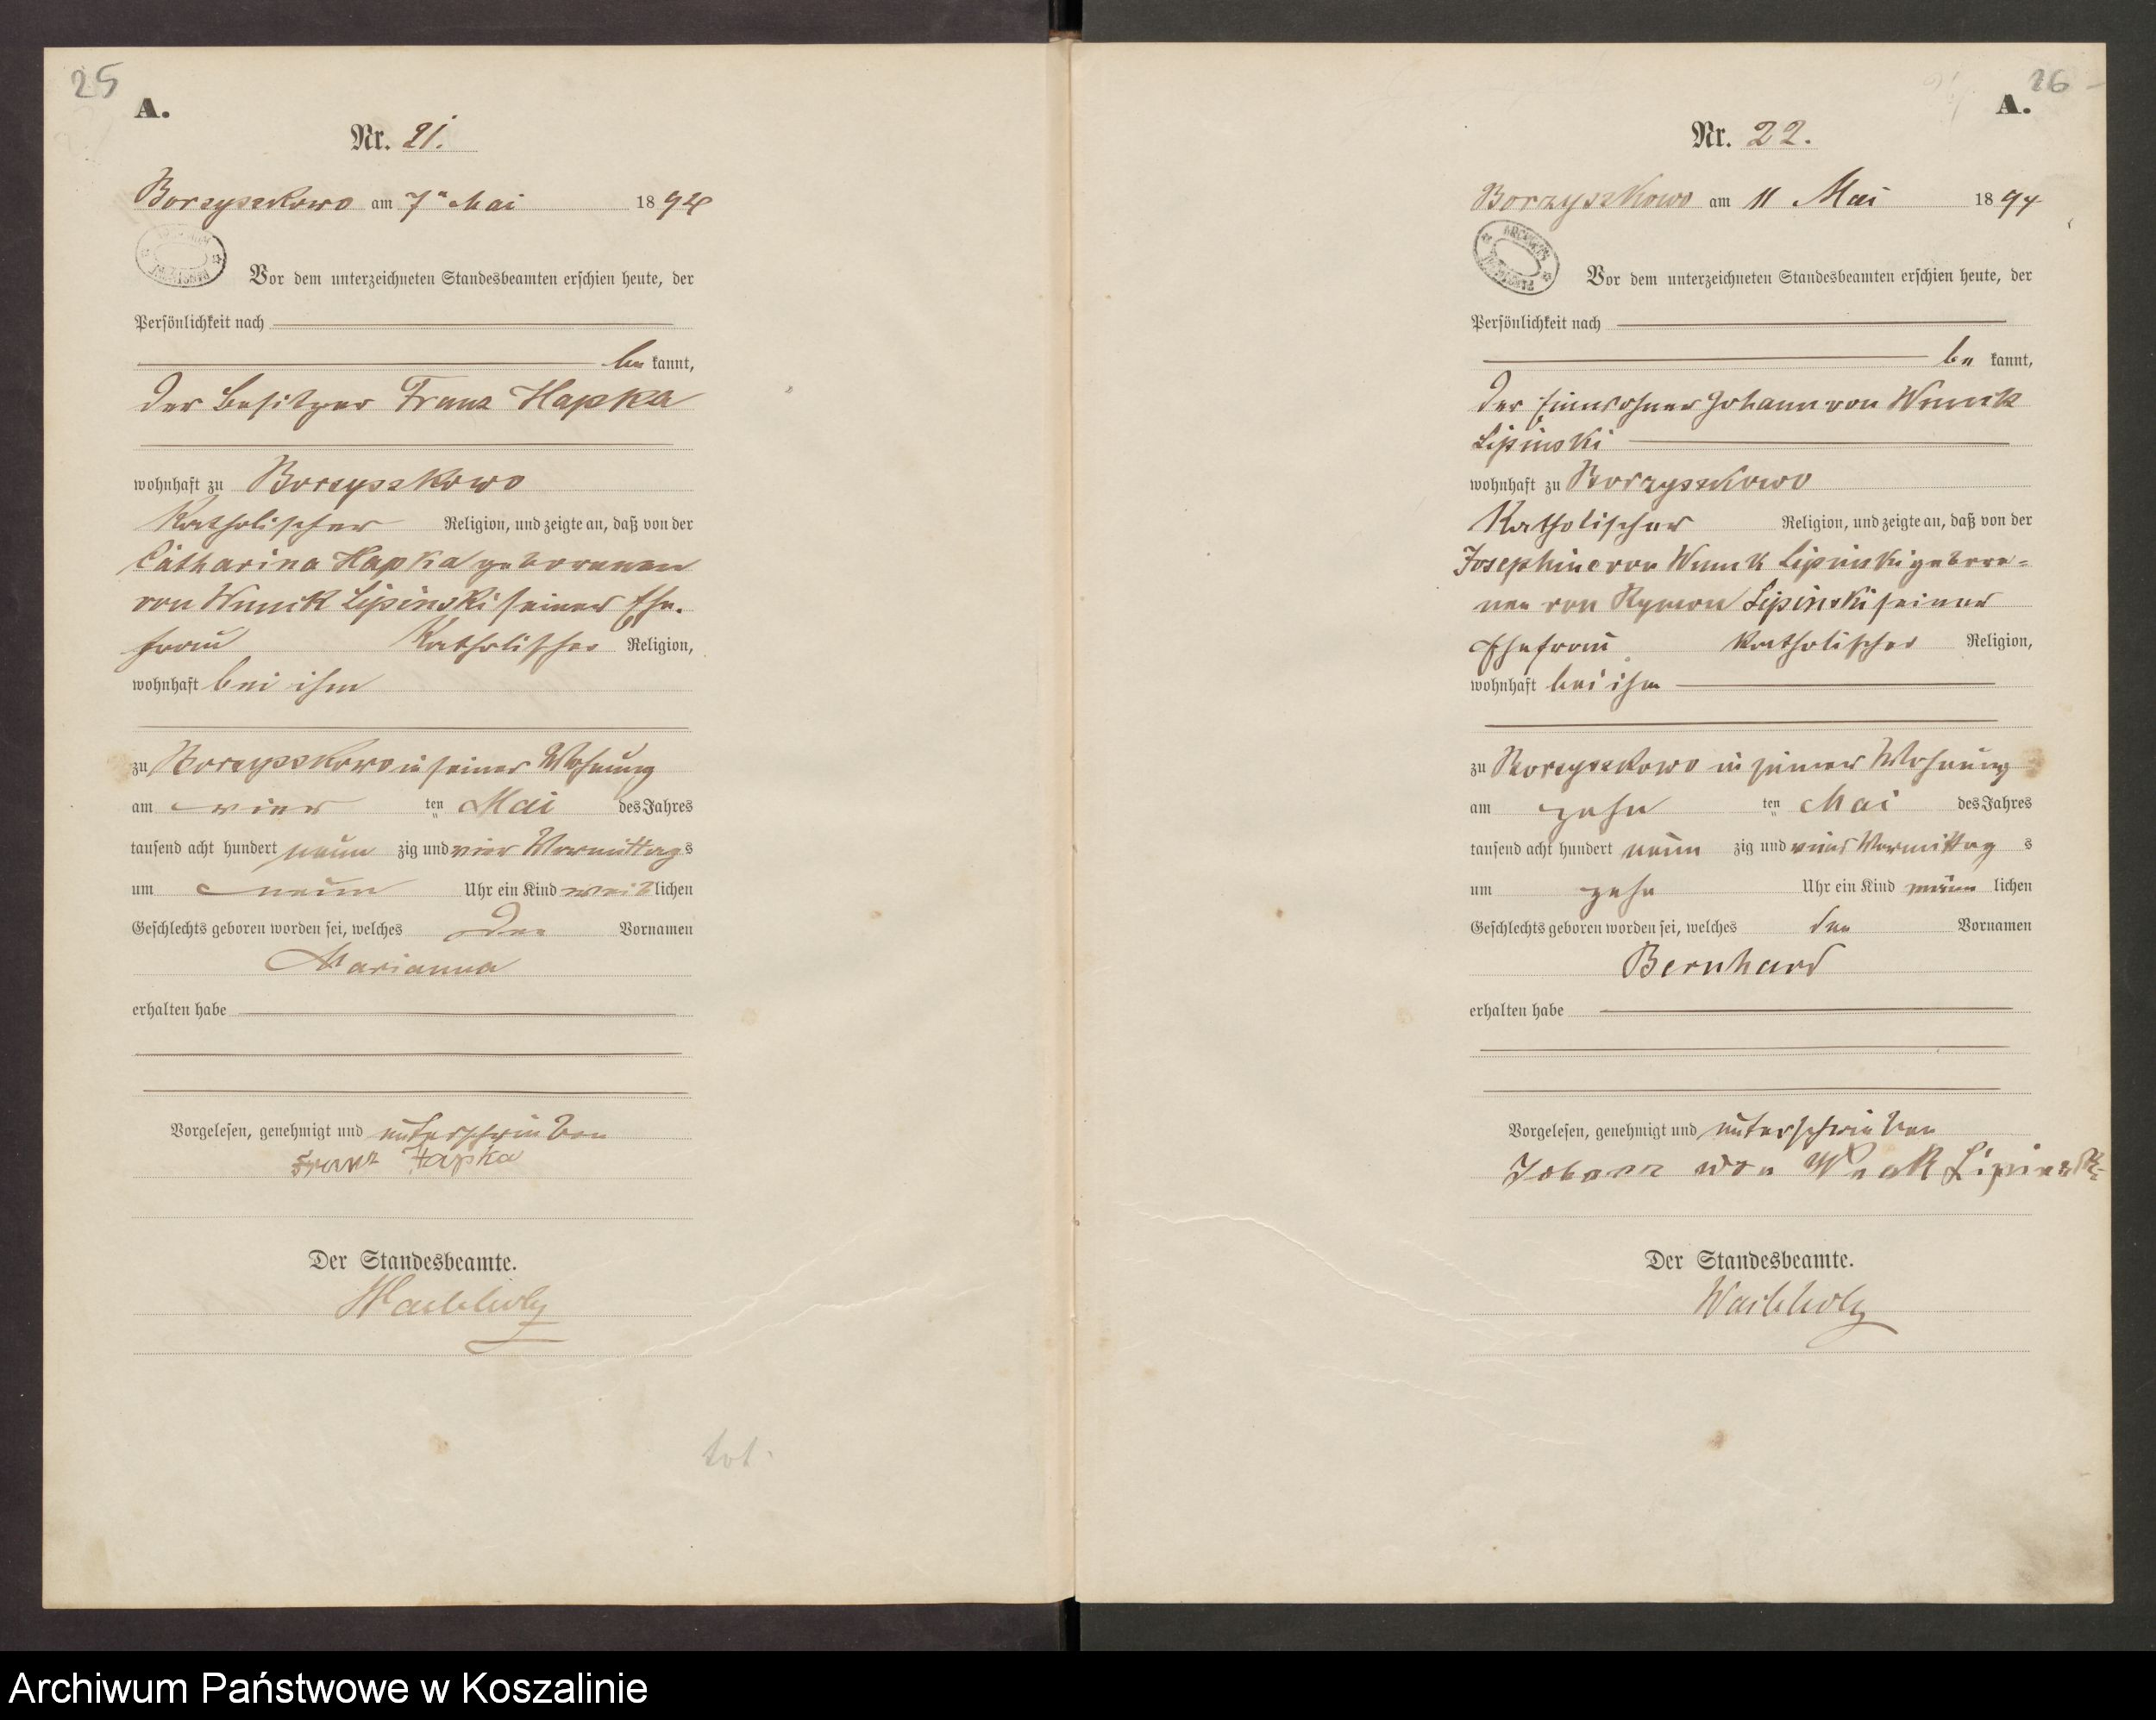 25
A.
Nr. 21.
Borzyszkowo am 7ⁿ Mai 1894
Vor dem unterzeichneten Standesbeamten erschien heute, der
Persönlichkeit nach
be kannt,
der Besitzer Franz Hapka
wohnhaft zu Borzyszkowo
Katholischer Religion, und zeigte an, daß von der
Catharina Hapka geborenen
von Wnuck Lipinski seiner Ehe-
frau Katholischer Religion,
wohnhaft bei ihm
zu Borzyszkowo in seiner Wohnung
am vier ten Mai des Jahres
tausend acht hundert neun zig und vier Vormittags
um neun Uhr ein Kind weiblichen
Geschlechts geboren worden sei, welches den Vornamen
Marianna
erhalten habe
Vorgelesen, genehmigt und unterschrieben
Franz Hapka
Der Standesbeamte.
Wachholz
tot.
26
A.
Nr. 22.
Borzyszkowo am 11 Mai 1894
ARCHIWUM
Vor dem unterzeichneten Standesbeamten erschien heute, der
Persönlichkeit nach
be kannt,
der Einwohner Johann von Wnuck
Lipinski
wohnhaft zu Borzyszkowo
Katholischer Religion, und zeigte an, daß von der
Josephine von Wnuck Lipinski gebore=
nen von Rymon Lipinski seiner
Ehefrau Katholischer Religion,
wohnhaft bei ihm
zu Borzyszkowo in seiner Wohnung
am zehn ten Mai des Jahres
tausend acht hundert neun zig und vier Vormittag s
um zehn Uhr ein Kind männ lichen
Geschlechts geboren worden sei, welches den Vornamen
Bernhard
erhalten habe
Vorgelesen, genehmigt und unterschrieben
Johann von Wnuk Lipinski
Der Standesbeamte.
Wachholz
Archiwum Państwowe w Koszalinie